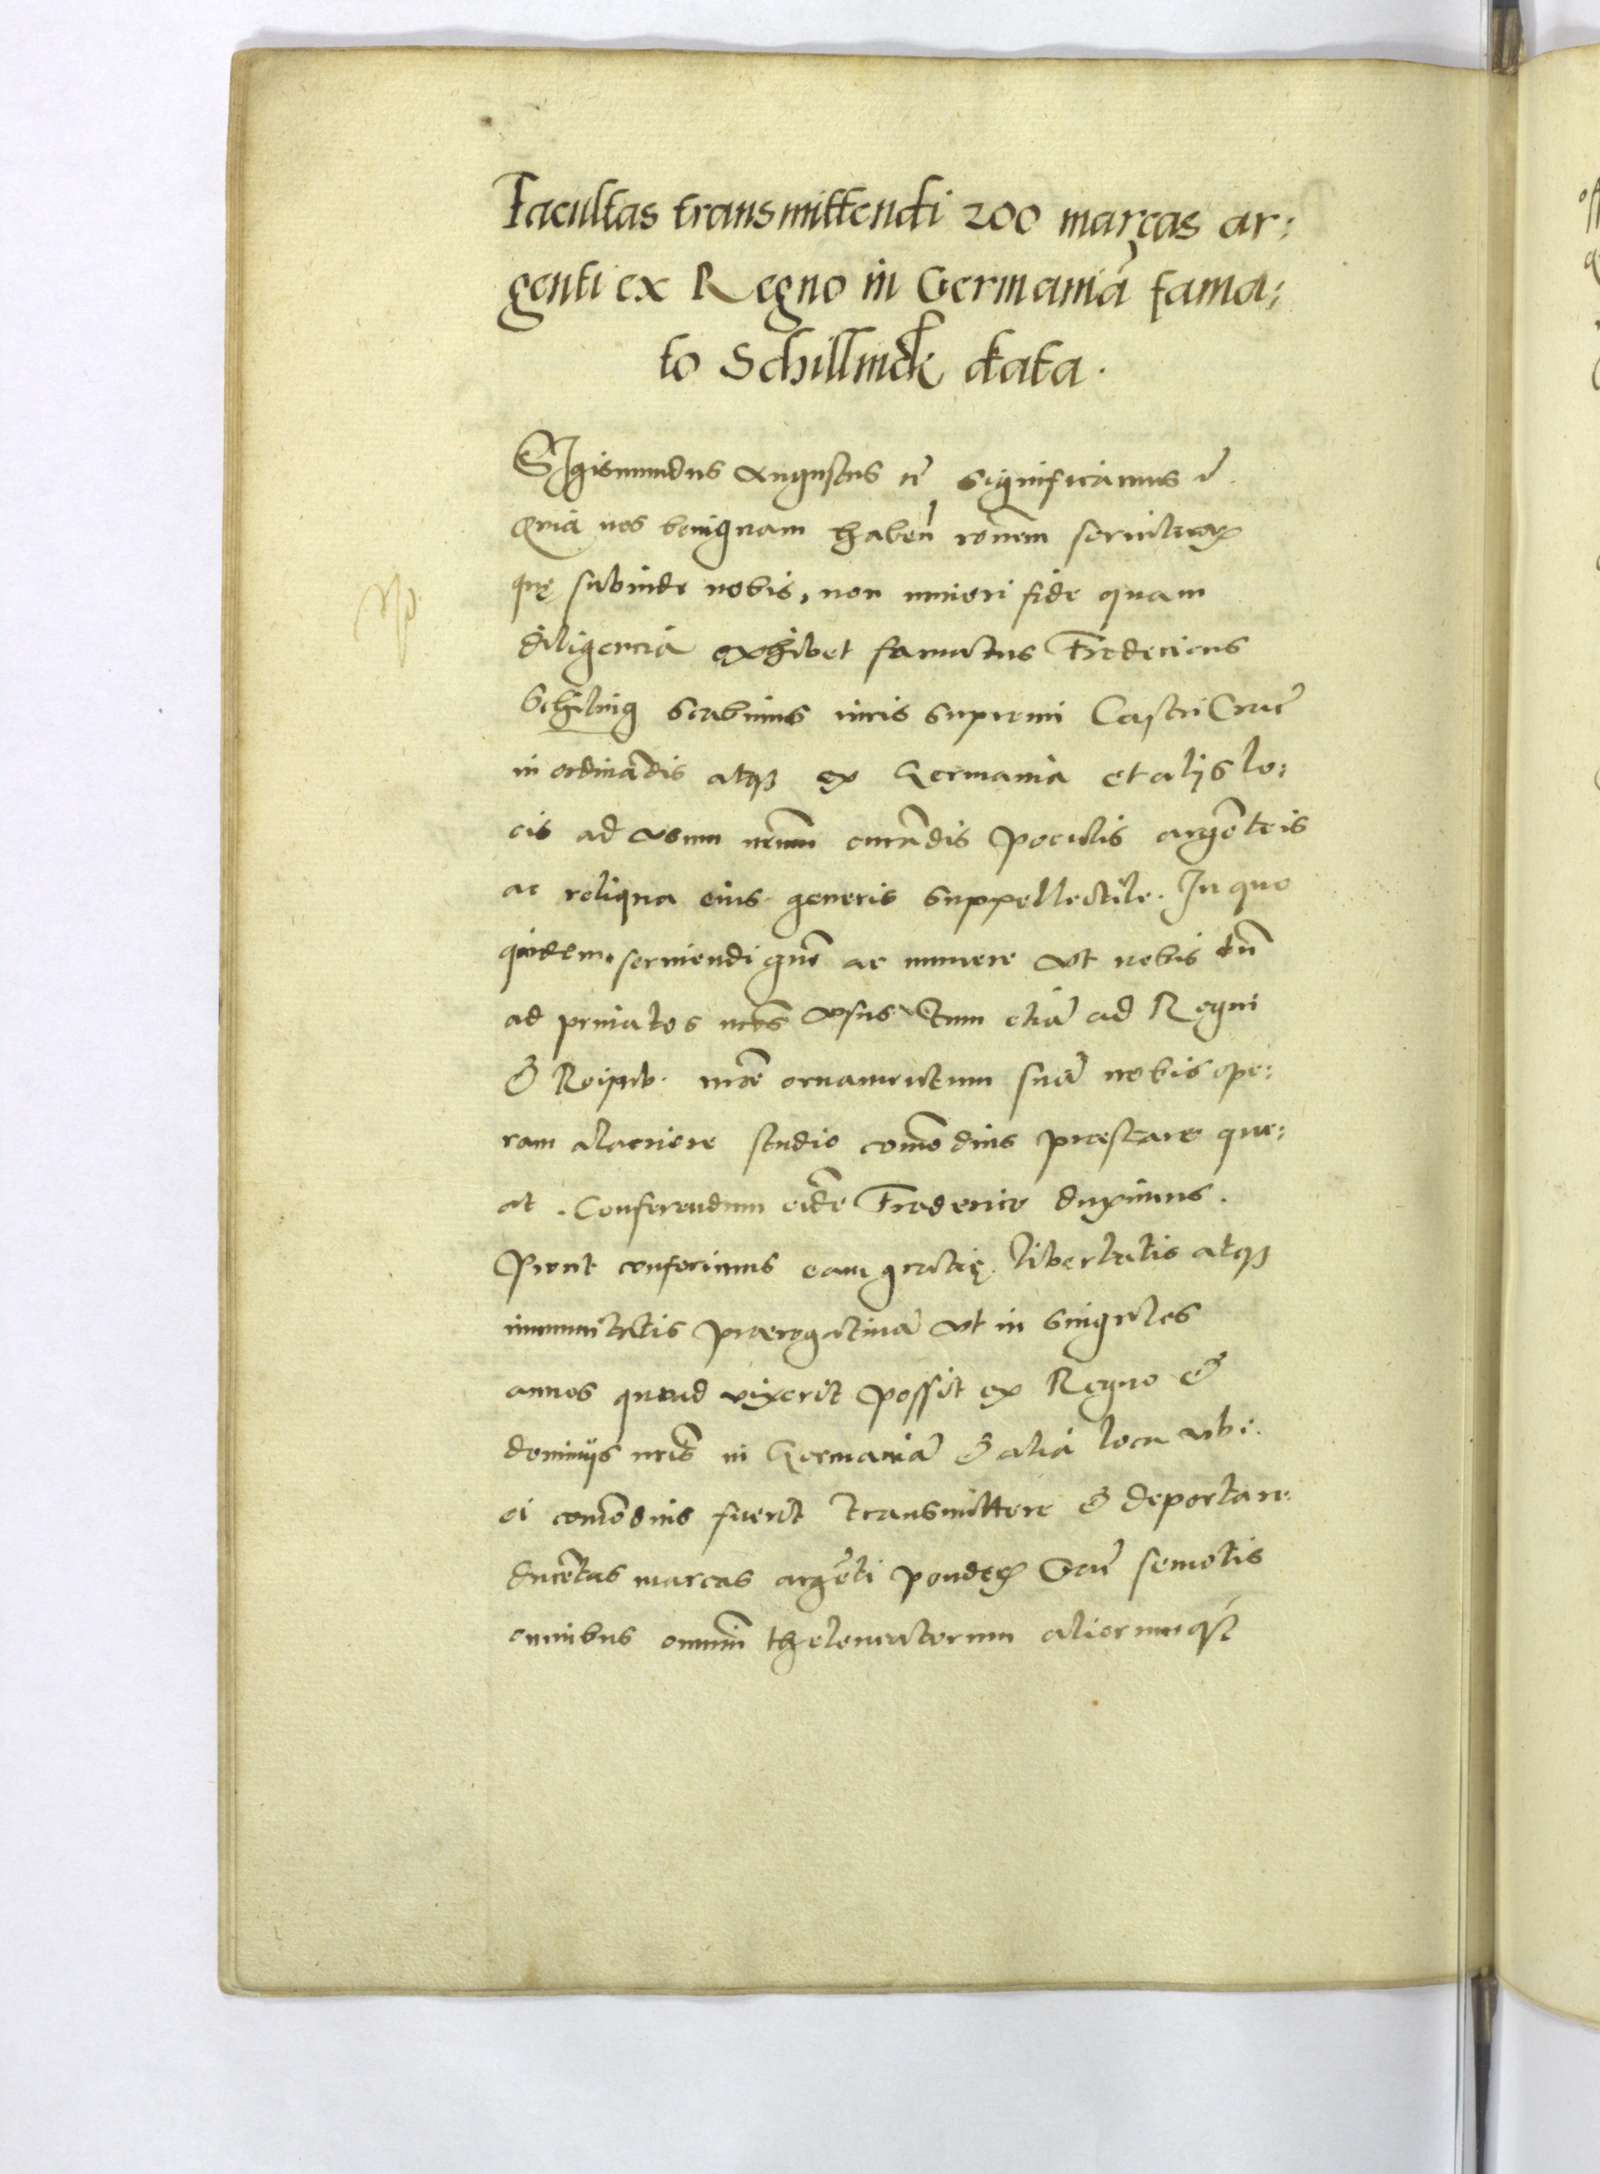 Facultas transmittendi 200 marcas ar:
genti ex Regno in Germaniã fama:
to Schillinck data.
Sigismundus Augustus rc̃ significamus c̃
Quia nos benignam habeñ rõnem seruitioꝝ
quę subinde nobis, non minori fide quam
diligencia exhibet famatus Fredericus
Schiling scabinus iuris supremi Castri Crac̃
in ordinãdis atqꝫ ex Germania et alijs lo:
cis ad vsum nr̃um curãdis poculis argẽteis
ac reliqua eius generis suppellectile. In quo
quidem seruiendi gñe ac munere vt nobis cũ
ad priuatos nr̃os vsus tum etiã ad Regni
& Reipub. nr̃ae ornamentum suã nobis ope:
ram alacriore studio com̃odius praestare que:
at. Conferendum eidẽ Frederico duximus.
Prout conferimus eam gratię libertatis atqꝫ
immunitatis praerogatiuã vt in singulos
annos quoad vixerit possit ex Regno &
dominijs nr̃is in Germaniã & alia loca vbi
ei com̃odius fuerit transmittere & deportare
ducẽtas marcas argẽti pondeꝝ Crac̃ semotis
omnibus omniũ theloneatorum aliorumqꝫ